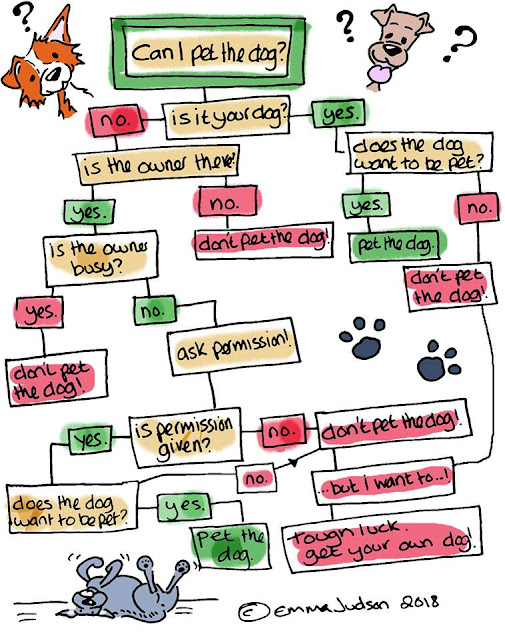 ?
?
?
Can I pet the dog?
no.
is it your dog?
yes.
is the owner there!
does the dog
want to be pet?
yes.
no.
yes.
no.
don't pet the dog!
pet the dog.
is the owner
busy?
don't pet
the dog!
yes.
no.
ask permission!
don't pet
the dog!
yes.
is permission
given?
no.
don't pet the dog!
no.
...but I want to...!
does the dog
want to be pet?
yes.
pet the
dog.
tough luck.
get your own dog!
© Emma Judson 2018